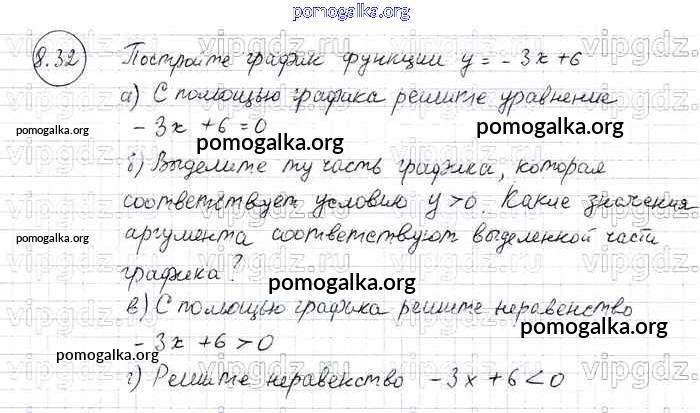 pomogalka.org
8.32 Постройте график функции y = -3x+6
а) С помощью графика решите уравнение
-3x+6=0
pomogalka.org pomogalka.org pomogalka.org
б) Выделите ту часть графика, которая
соответствует условию y>0. Какие значения
pomogalka.org
аргумента соответствуют выделенной части
графика?
pomogalka.org
в) С помощью графика решите неравенство
pomogalka.org
-3x+6>0
pomogalka.org
г) Решите неравенство -3x+6<0